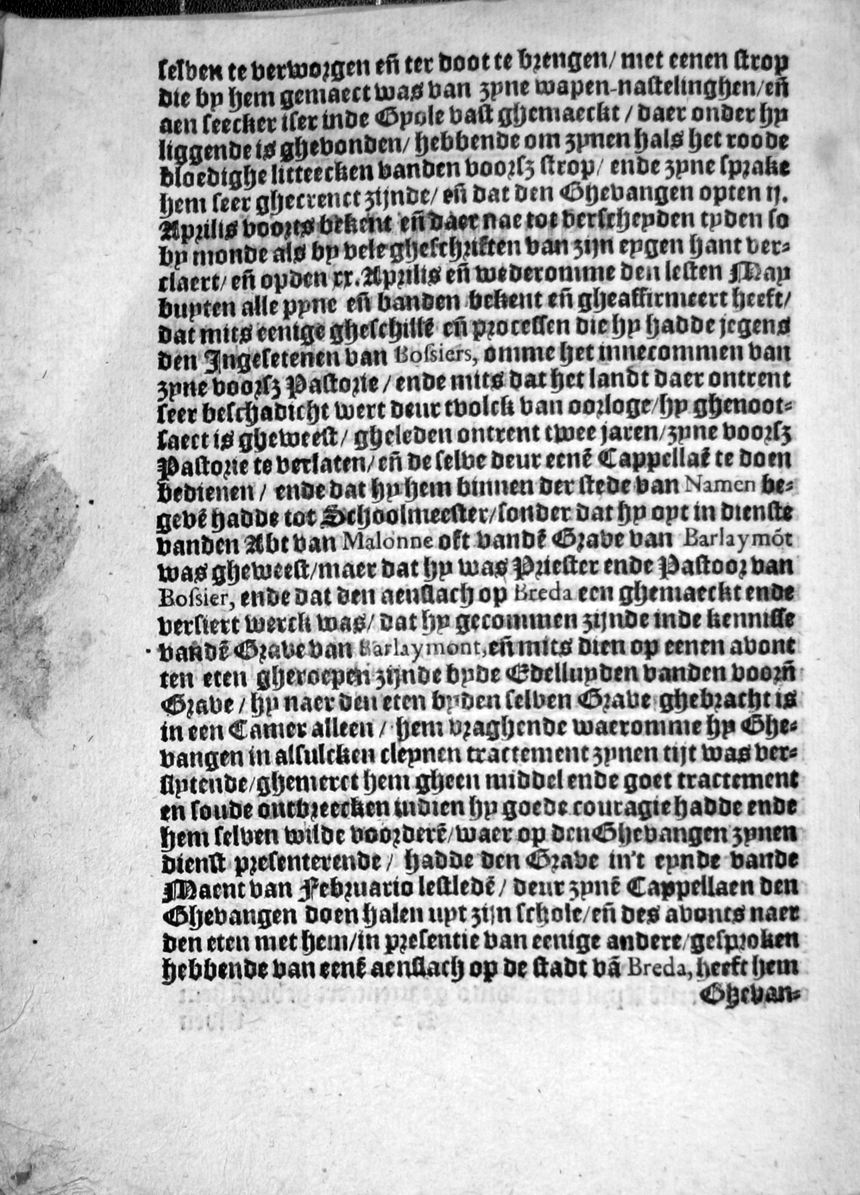 selven te verworgen eñ ter doot te brengen/ met eenen strop
die by hem gemaect was van zyne wapen-nastelinghen/eñ
aen seecker iser inde Gyole vast ghemaeckt / daer onder hy
liggende is ghevonden/ hebbende om zynen hals het roode
bloedighe litteecken vanden voorsz strop/ ende zyne sprake
hem seer ghecrenct zijnde/ eñ dat den Ghevangen opten ij.
Aprilis voorts bekent eñ daer nae tot verscheyden tyden so
by monde als by vele gheschriften van zijn eygen hant ver-
claert/ eñ opden xx. Aprilis eñ wederomme den lesten May
buyten alle pyne eñ banden bekent eñ gheaffirmeert heeft/
dat mits eenige gheschillē eñ processen die hy hadde jegens
den Ingesetenen van Bossiers, omme het innecommen van
zyne voorsz Pastorie / ende mits dat het landt daer ontrent
seer beschadicht wert deur tvolck van oorloge/hy ghenoot-
saect is gheweest/ gheleden ontrent twee jaren/zyne voorsz
Pastorie te verlaten/ eñ de selve deur eenē Cappellaē te doen
bedienen / ende dat hy hem binnen der stede van Namen be-
gevē hadde tot Schoolmeester/sonder dat hy oyt in dienste
vanden Abt van Malonne oft vandē Grave van Barlaymōt
was gheweest/maer dat hy was Priester ende Pastoor van
Bossier, ende dat den aenslach op Breda een ghemaeckt ende
versiert werck was/ dat hy gecommen zijnde inde kennisse
vandē Grave van Barlaymont, eñ mits dien op eenen avont
ten eten gheroepen zijnde byde Edelluyden vanden voorñ
Grave / hy naer den eten byden selven Grave ghebracht is
in een Camer alleen / hem vraghende waeromme hy Ghe-
vangen in alsulcken cleynen tractement zynen tijt was ver-
slytende/ghemerct hem gheen middel ende goet tractement
en soude ontbreecken indien hy goede couragie hadde ende
hem selven wilde voorderē/waer op den Ghevangen zynen
dienst presenterende / hadde den Grave in't eynde vande
Maent van Februario lestledē / deur zynē Cappellaen den
Ghevangen doen halen uyt zijn schole/eñ des avonts naer
den eten met hem/in presentie van eenige andere/gesproken
hebbende van eenē aenslach op de stadt vā Breda, heeft hem
Ghevan-